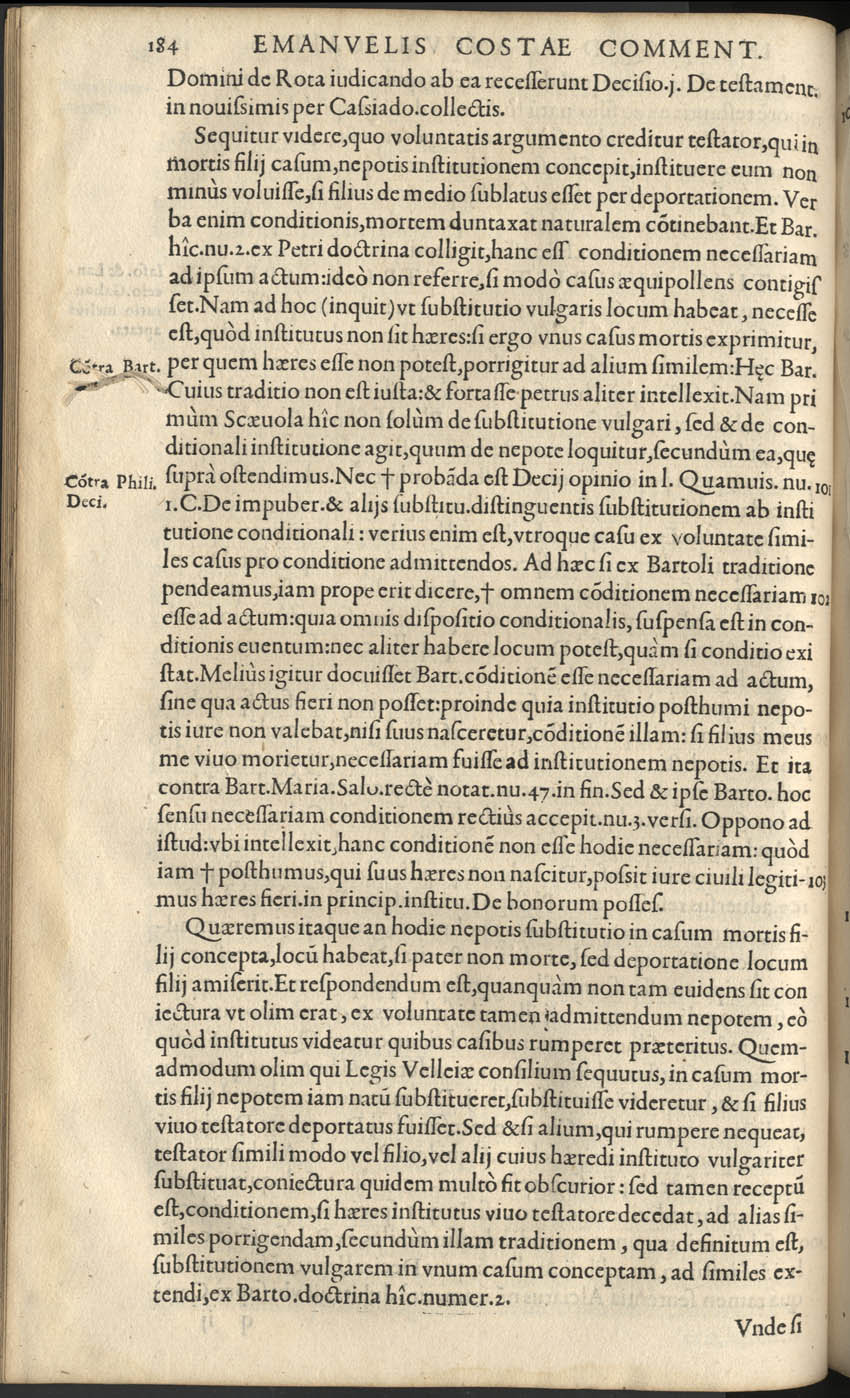 184 EMANVELIS COSTAE COMMENT.
Domini de Rota iudicando ab ea recesserunt Decisio.j. De testament.
in nouissimis per Cassiado.collectis.
Sequitur videre,quo voluntatis argumento creditur testator,qui in
mortis filij casum,nepotis institutionem concepit,instituere eum non
minùs voluisse,si filius de medio sublatus esset per deportationem. Ver
ba enim conditionis,mortem duntaxat naturalem cõtinebant.Et Bar.
hîc.nu.2.ex Petri doctrina colligit,hanc ess conditionem necessariam
ad ipsum actum:ideò non referre,si modò casus æquipollens contigis
set.Nam ad hoc (inquit)vt substitutio vulgaris locum habeat, necesse
est,quòd institutus non sit hæres:si ergo vnus casus mortis exprimitur,
Cõtra Bart. per quem hæres esse non potest,porrigitur ad alium similem:Hęc Bar.
Cuius traditio non est iusta:& fortasse petrus aliter intellexit.Nam pri
mùm Scæuola hîc non solùm de substitutione vulgari, sed & de con-
ditionali institutione agit,quum de nepote loquitur,secundùm ea,quę
Cõtra Phili. suprà ostendimus.Nec † probãda est Decij opinio in l. Quamuis. nu. 101
Deci. 1.C.De impuber.& alijs substitu.distinguentis substitutionem ab insti
tutione conditionali: verius enim est,vtroque casu ex voluntate simi-
les casus pro conditione admittendos. Ad hæc si ex Bartoli traditione
pendeamus,iam prope erit dicere,† omnem cõditionem necessariam 102
esse ad actum:quia omnis dispositio conditionalis, suspensa est in con-
ditionis euentum:nec aliter habere locum potest,quàm si conditio exi
stat.Meliùs igitur docuisset Bart.cõditionẽ esse necessariam ad actum,
sine qua actus fieri non posset:proinde quia institutio posthumi nepo-
tis iure non valebat,nisi suus nasceretur,cõditionẽ illam: si filius meus
me viuo morietur,necessariam fuisse ad institutionem nepotis. Et ita
contra Bart.Maria.Salo.rectè notat.nu.47.in fin.Sed & ipse Barto. hoc
sensu necessariam conditionem rectiùs accepit.nu.3.versi. Oppono ad
istud:vbi intellexit,hanc conditionẽ non esse hodie necessariam: quòd
iam † posthumus,qui suus hæres non nascitur,possit iure ciuili legiti- 103
mus hæres fieri.in princip.institu.De bonorum posses.
Quæremus itaque an hodie nepotis substitutio in casum mortis fi-
lij concepta,locũ habeat,si pater non morte, sed deportatione locum
filij amiserit.Et respondendum est,quanquàm non tam euidens sit con
iectura vt olim erat, ex voluntate tamen admittendum nepotem, eò
quòd institutus videatur quibus casibus rumperet præteritus. Quem-
admodum olim qui Legis Velleiæ consilium sequutus, in casum mor-
tis filij nepotem iam natũ substitueret,substituisse videretur, & si filius
viuo testatore deportatus fuisset.Sed & si alium,qui rumpere nequeat,
testator simili modo vel filio,vel alij cuius hæredi instituto vulgariter
substituat,coniectura quidem multò fit obscurior: sed tamen receptũ
est,conditionem,si hæres institutus viuo testatore decedat, ad alias si-
miles porrigendam,secundùm illam traditionem, qua definitum est,
substitutionem vulgarem in vnum casum conceptam, ad similes ex-
tendi,ex Barto.doctrina hîc.numer.2.
Vnde si